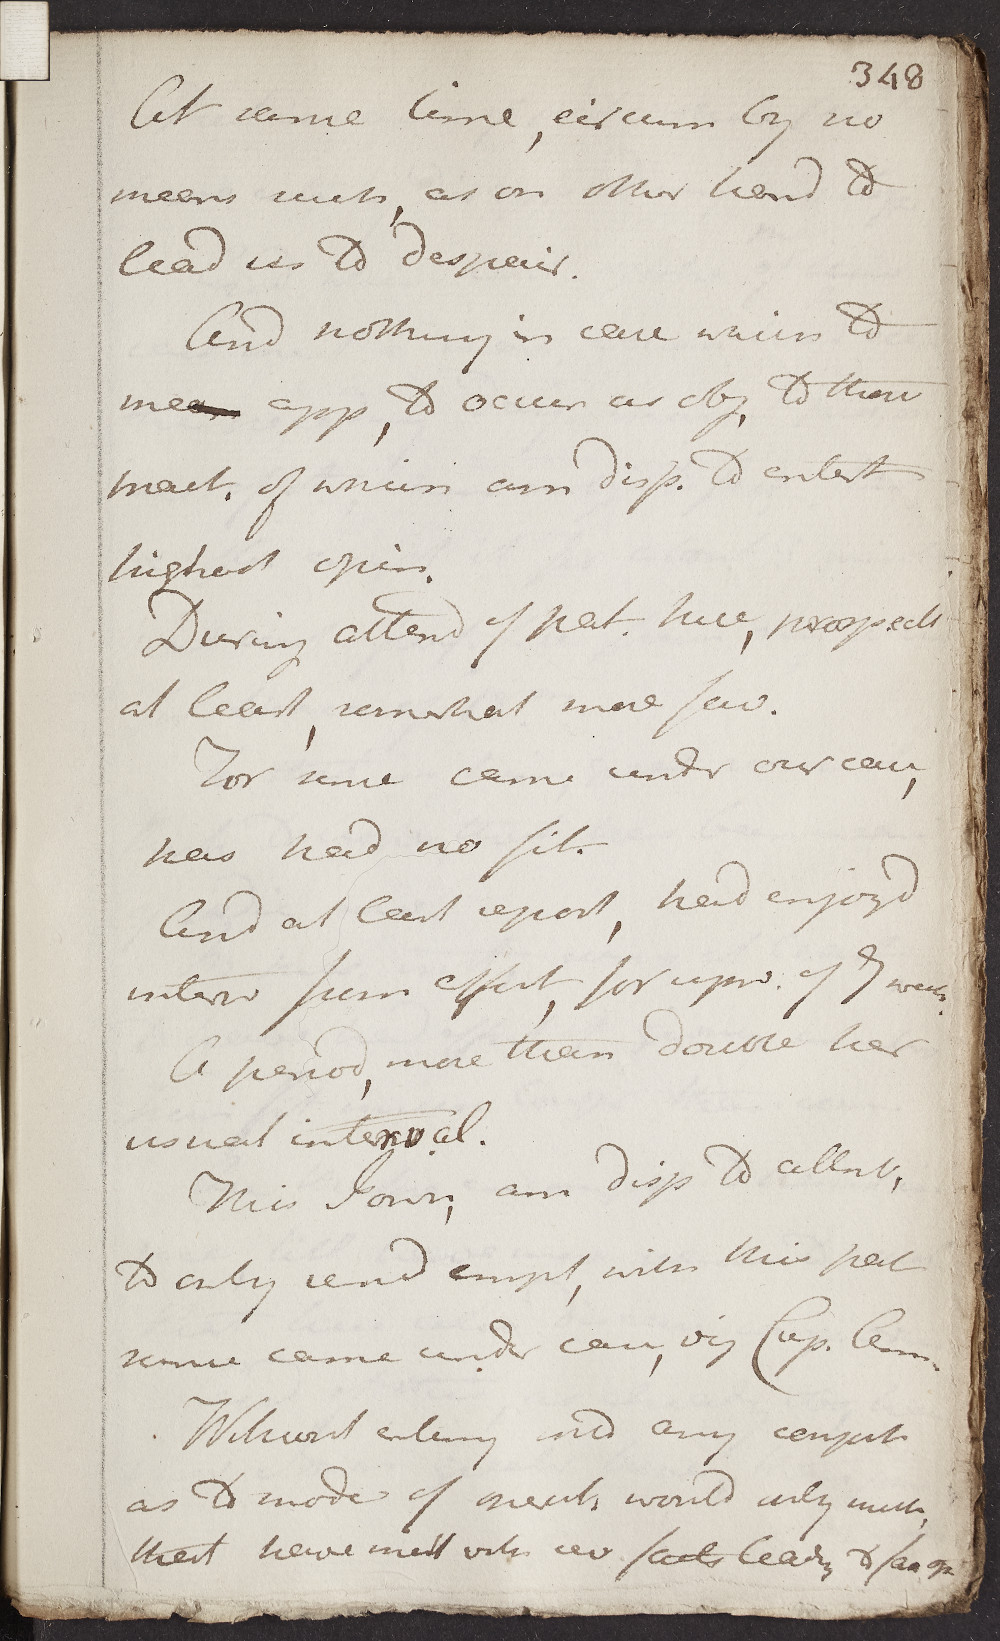 348
At same time, circum by no
means such, as on other hand to
lead us to despair.
And nothing in case which to
me app, to occur as obj, to them
treat. of which am disp. to entert
highest opin.
During attend of pat. here, prospects
at least, somewhat more fav.
For since came under our care,
has had no fit.
And at last report, had enjoyd
interv from effect, for upw. of 7 weeks.
A period, more than double her
usual interval.
This I own, am disp to attrib,
to only remd empl, with this pat
since came under care, viz Cup. Amm.
Without entering into any conject
as to mode of operat, would only ment,
that have mett with sev facts leading to fav op